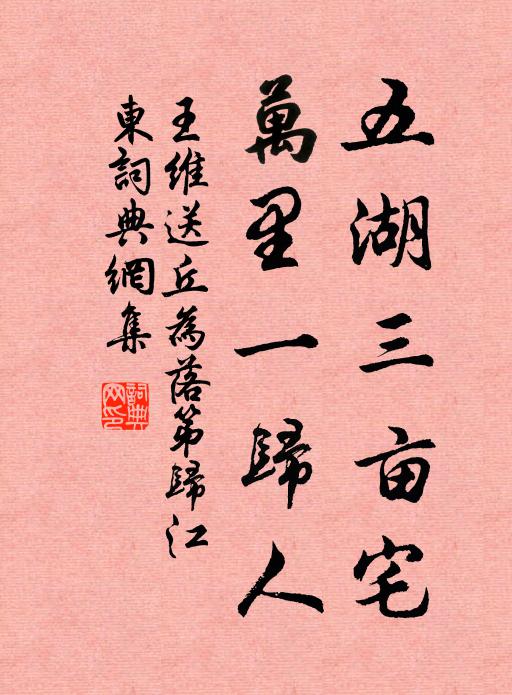 五湖三亩宅
萬里一歸人
王維送丘為落第歸江
東詞典網集
詞典
网印